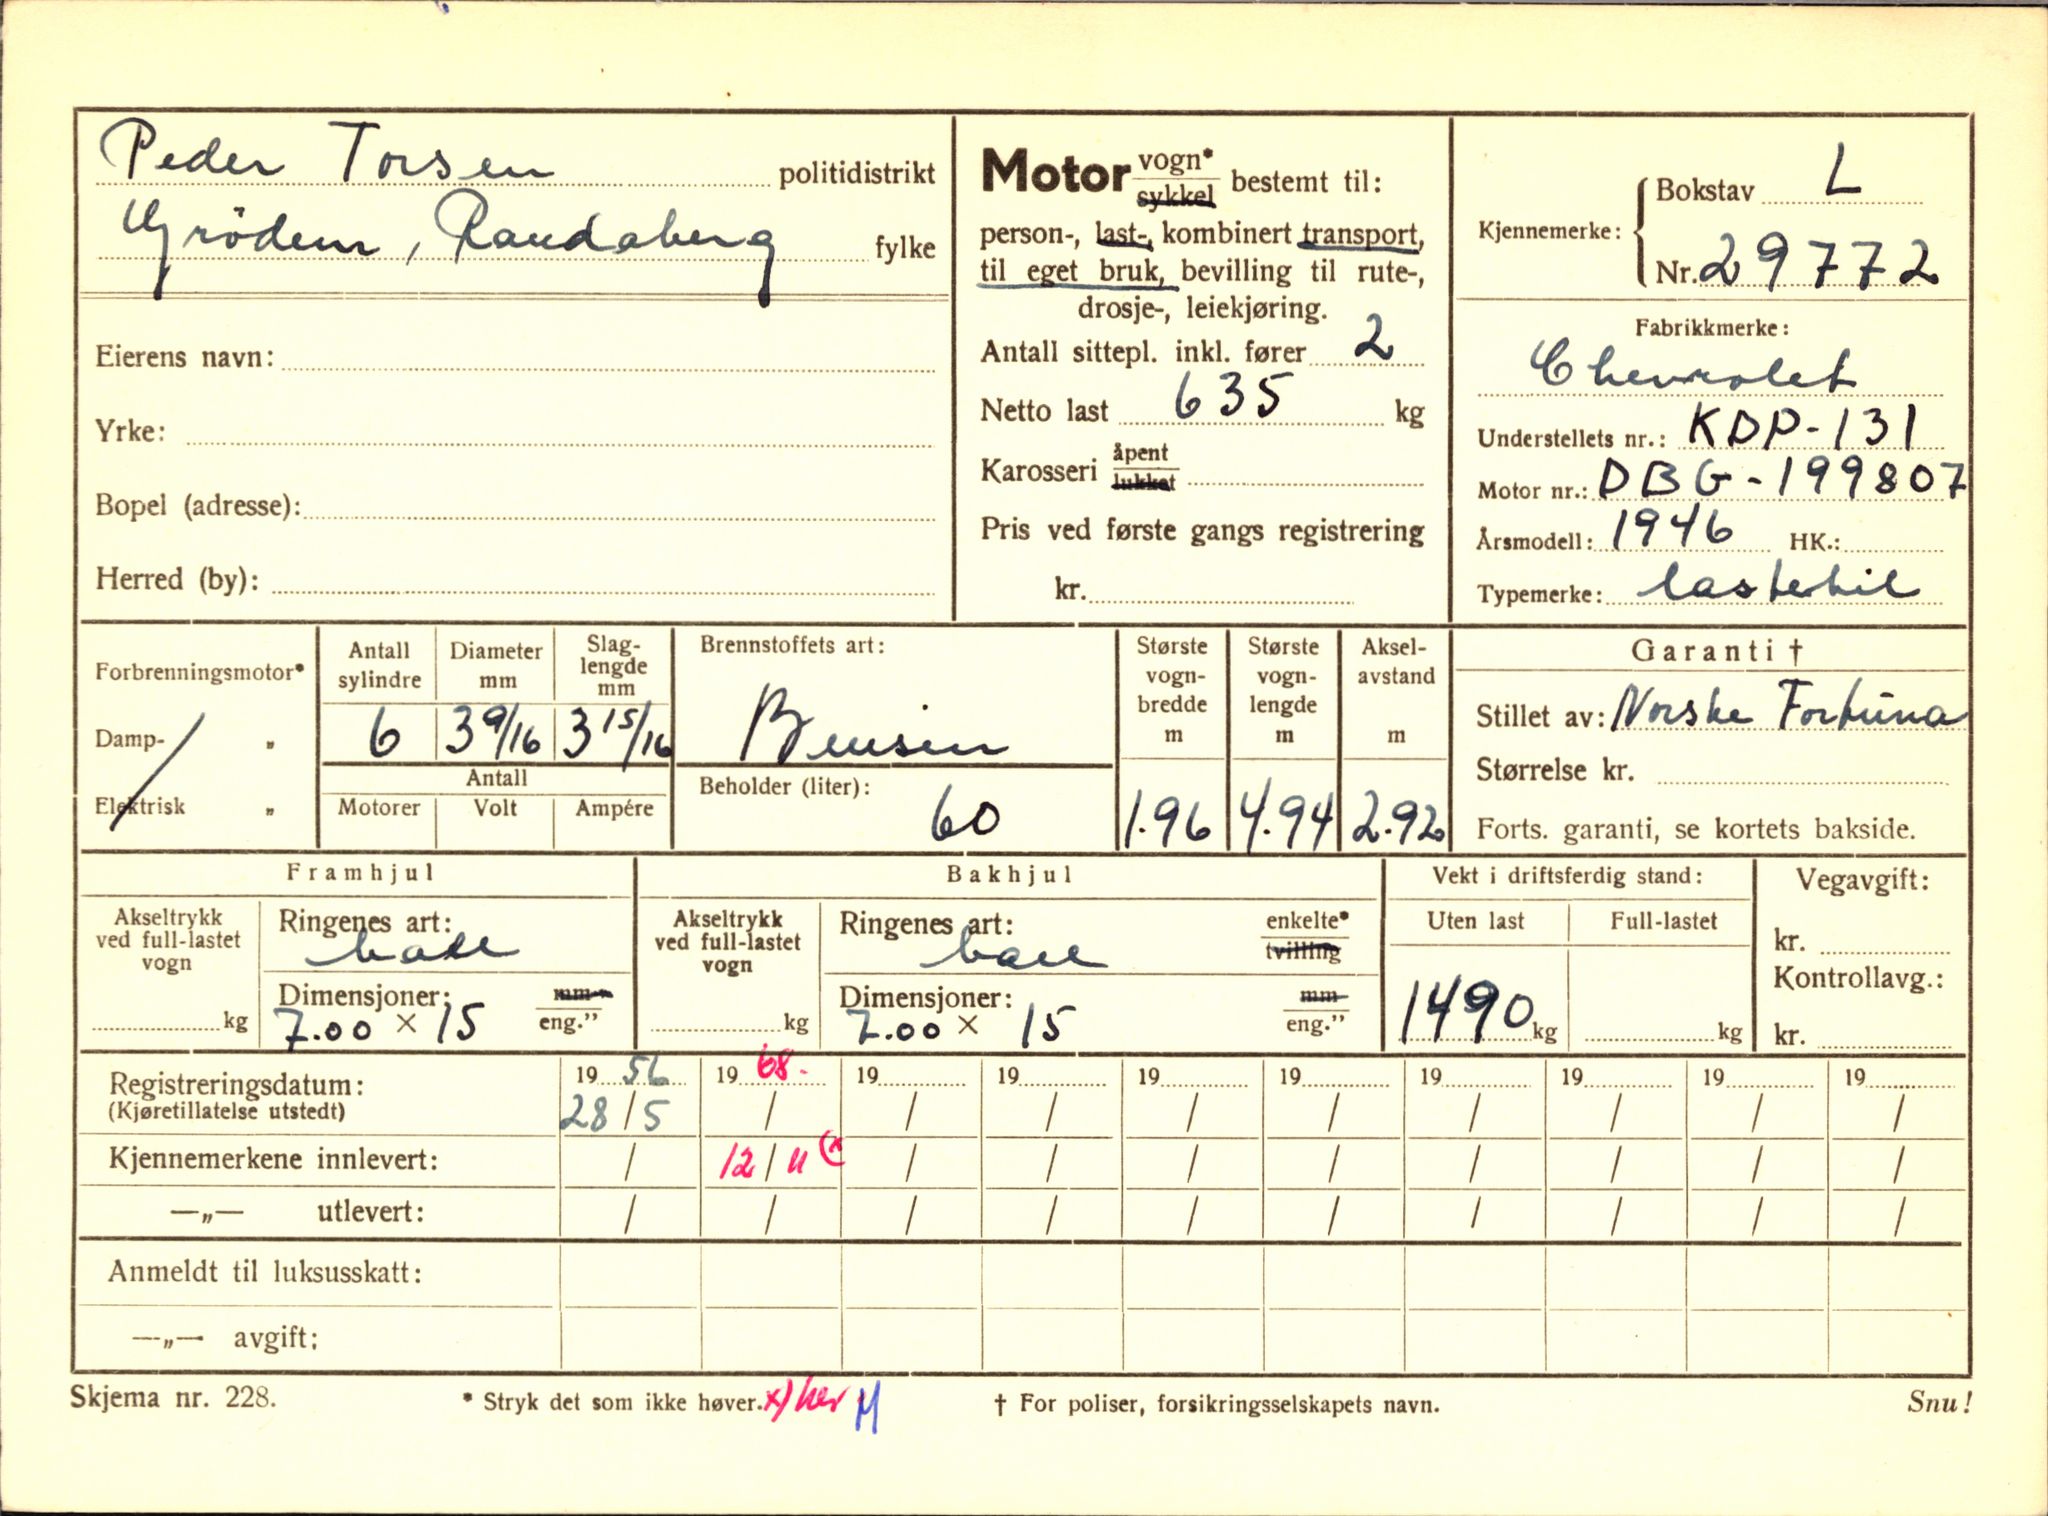 Peder Torsen politidistrikt
Grödem, Randaberg fylke
Eierens navn:
Yrke:
Bopel (adresse):
Herred (by):
Motor vogn* sykkel bestemt til:
person-, last-, kombinert transport,
til eget bruk, bevilling til rute-,
drosje-, leiekjøring.
Antall sittepl. inkl. fører 2
Netto last 635 kg
Karosseri åpent lukket
Pris ved første gangs registrering
kr.
Kjennemerke: Bokstav L
Nr. 29772
Fabrikkmerke:
Chevrolet
Understellets nr.: KDP-131
Motor nr.: DBG-199807
Årsmodell: 1946 HK.:
Typemerke: lastebil
Forbrenningsmotor*
Damp- „
Elektrisk „
Antall sylindre
6
Diameter mm
3 9/16
Slag-lengde mm
3 15/16
Antall
Motorer Volt Ampére
Brennstoffets art:
Bensin
Beholder (liter):
60
Største vogn-bredde m
1.96
Største vogn-lengde m
4.94
Aksel-avstand m
2.92
Garanti †
Stillet av: Norske Fortuna
Størrelse kr.
Forts. garanti, se kortets bakside.
Framhjul
Akseltrykk ved full-lastet vogn
kg
Ringenes art:
Dimensjoner: mm eng.”
7.00 × 15
Bakhjul
Akseltrykk ved full-lastet vogn
kg
Ringenes art: enkelte* tvilling
Dimensjoner: mm eng.”
7.00 × 15
Vekt i driftsferdig stand:
Uten last Full-lastet
1490 kg kg
Vegavgift:
kr.
Kontrollavg.:
kr.
Registreringsdatum: 19 56 19 68. 19 19 19 19 19 19 19 19
(Kjøretillatelse utstedt) 28/5 / / / / / / / / /
Kjennemerkene innlevert: / 12/11 (x / / / / / / / /
—„— utlevert: / / / / / / / / / /
Anmeldt til luksusskatt:
—„— avgift:
Skjema nr. 228. * Stryk det som ikke høver. x) her M † For poliser, forsikringsselskapets navn. Snu!